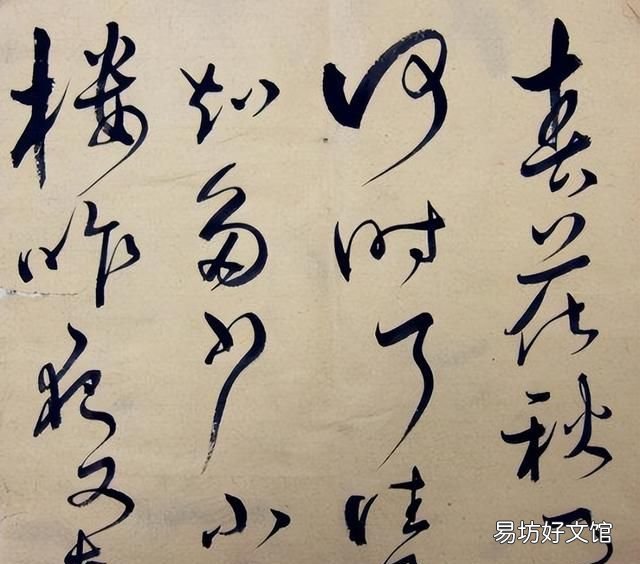 春花秋月
何时了往
知多少小
楼昨夜又东
易坊好文馆